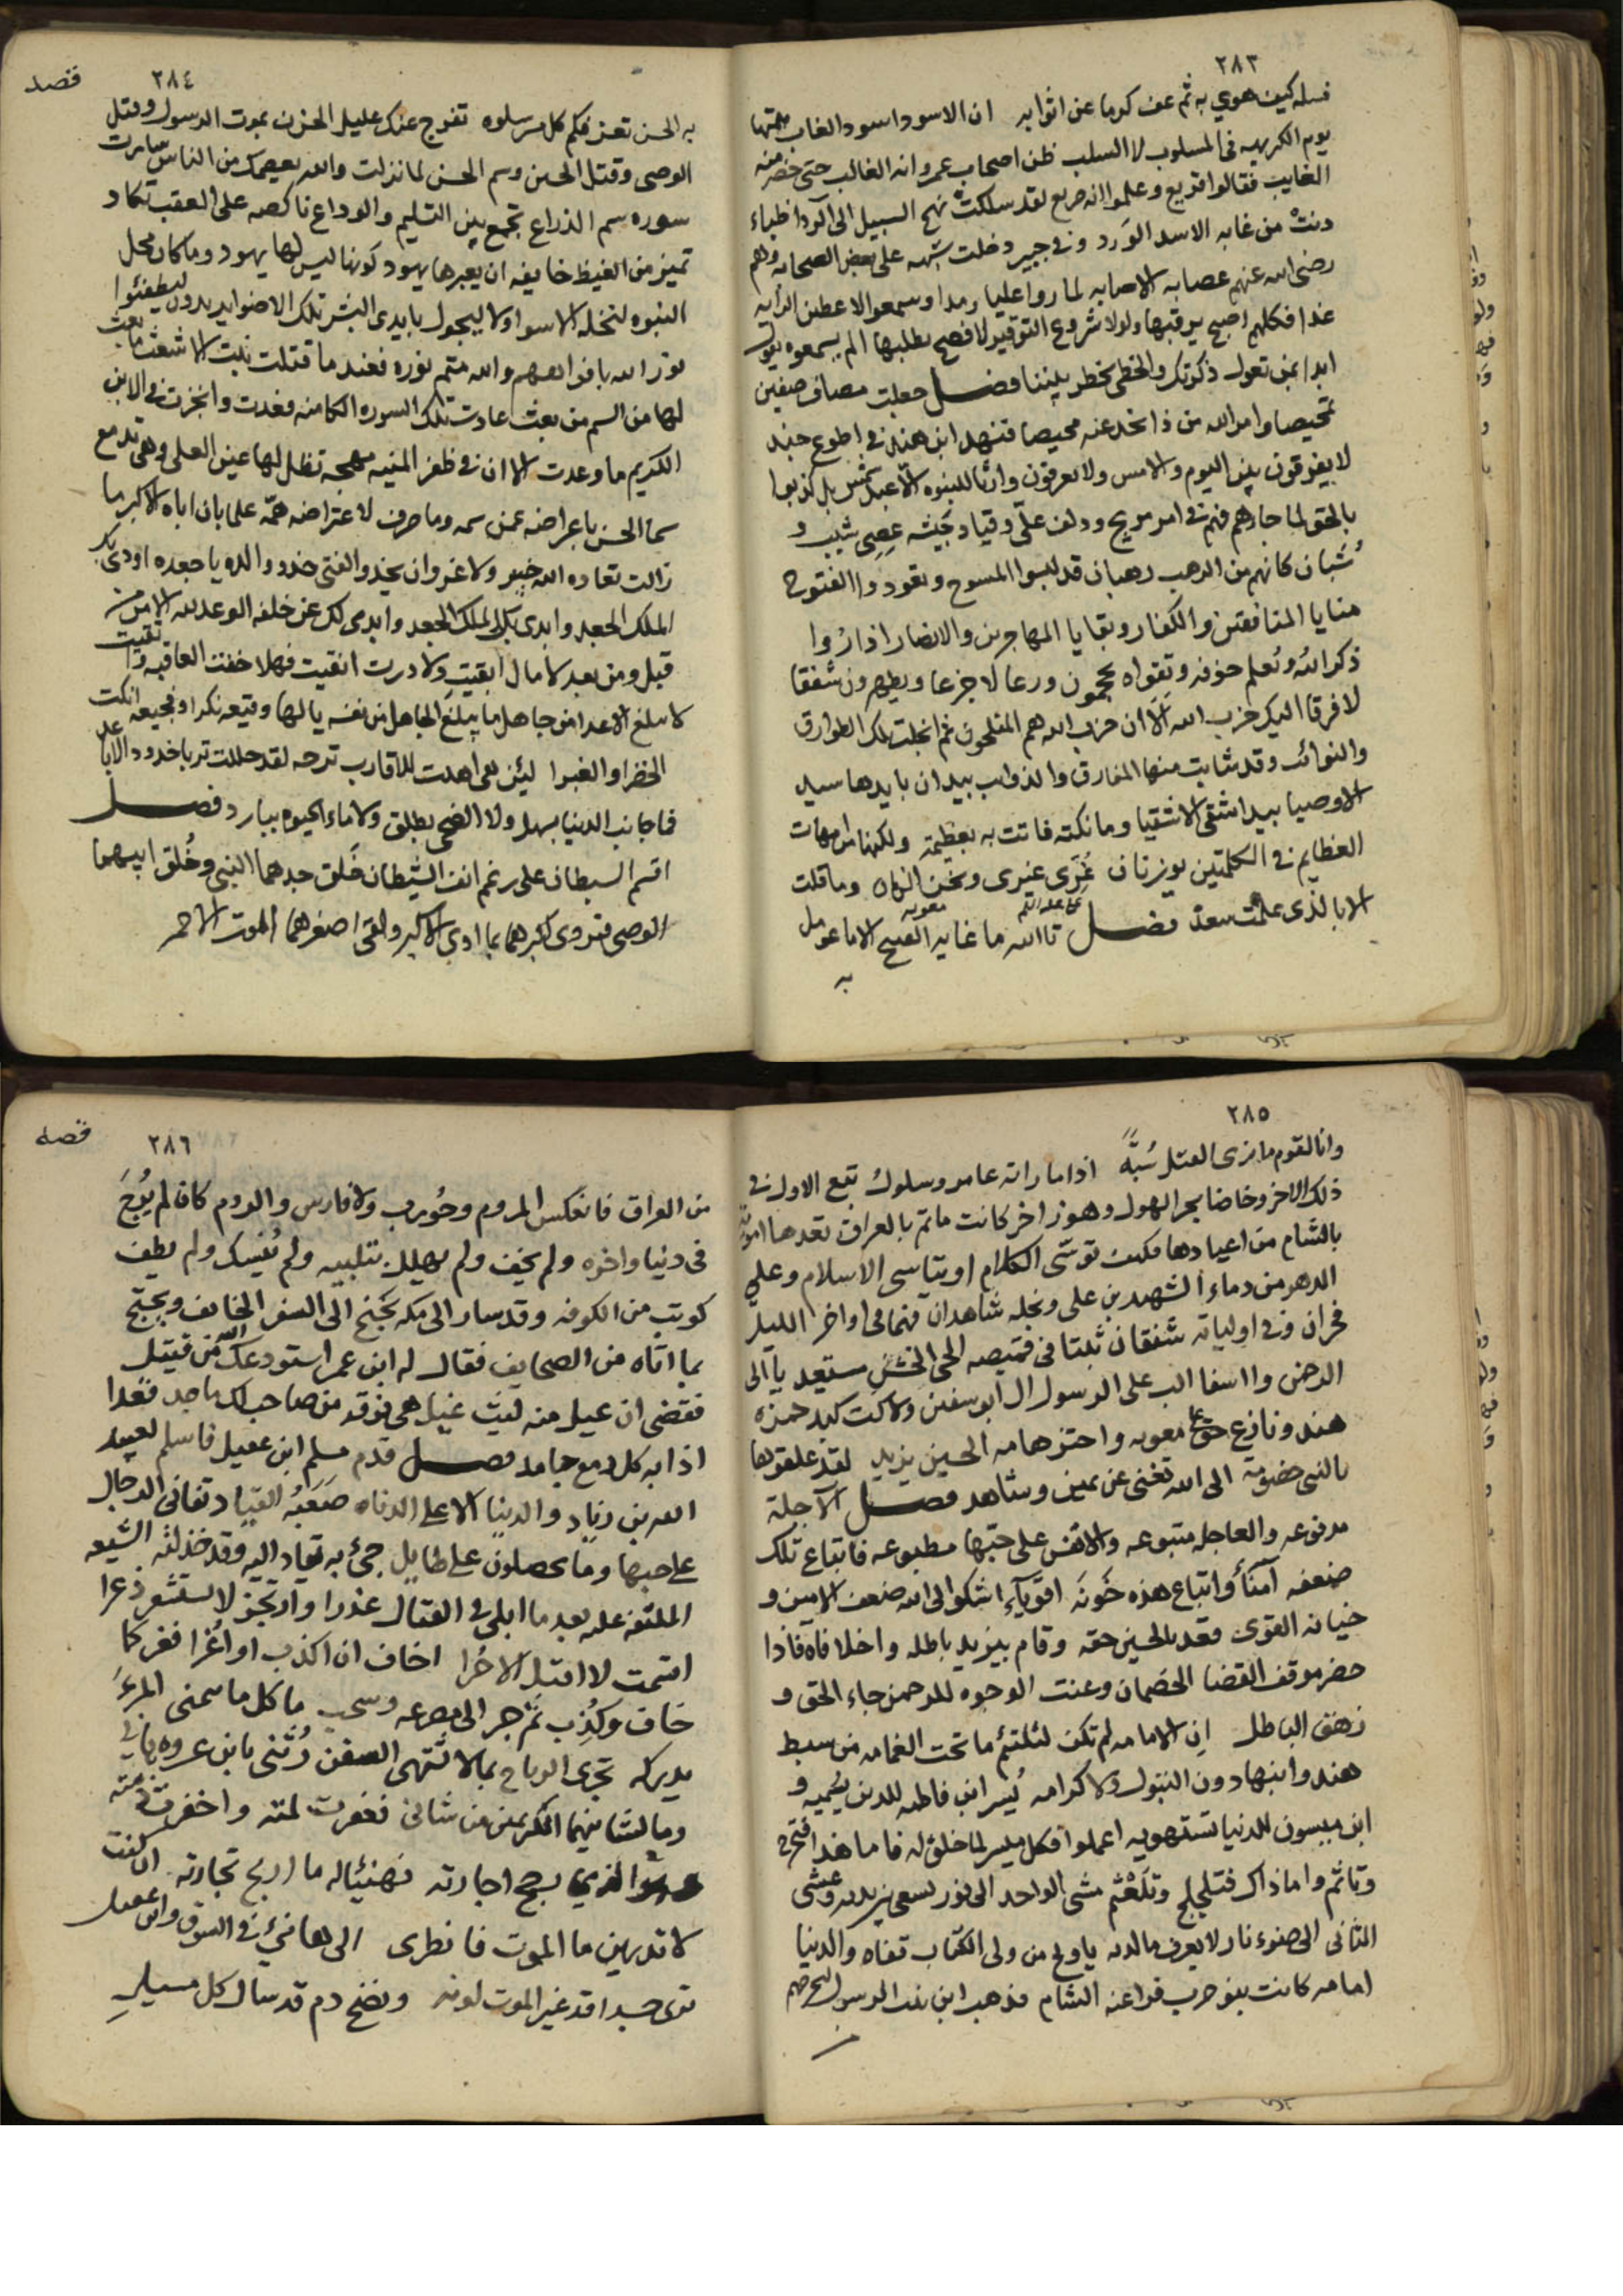 ٢٨٣
فسله كيف هوي به ثم عف كرما عن اثوابه ان الاسود اسود الغاب همتها
يوم الكريهه في المسلوب لا السلب ظن اصحاب عمرو انه الغالب حتى خضر منه
الغايب فقالوا قريع وعلموا انه صريع لقد سلكت نهج السبيل الى الردا ظباء
دنت من غابه الاسد الوَرد وفي خيبر دخلت شبهه على بعض الصحابه وهم
رضي الله عنهم عصابه الاصابه لما راوا عليا رمدا وسمعوا لاعطين الرايه
غدا فكلهم اصبح يرقبها ولولا شروع التوقير لافصح بطلبها الم يسمعوه يقول
ابدا بمن تعول ذكرتك والخطي يخطر بيننا فصل جعلت مصاف صفين
تمحيصا وامر الله من ذا نجد عنه محيصا فنهد ابن هند في اطوع جند
لا يفرقون بين اليوم والامس ولا يعرفون وارثا للنبوه الا عبد شمس بل كذبوا
بالحق لما جاءهم فهم في امر مريج ودلف علي وقياد جيشه عصي شيب و
شُبان كانهم من الرهب رهبان قد لبسوا المسوح وتعودوا الفتوح
منايا المنافقين والكفار وبقايا المهاجرين والانصار اذا رُوا
ذكر الله وتُعلم خوفه وتقواه يحجمون ورعا لا جزعا ويظهرون شفقا
لا فرقا اليك حزب الله اَلَا ان حزب الله هم المفلحون ثم انجلت تلك الطوارق
والنوائب وقد شابت منها المفارق والذوايب بيد ان بايدها سيد
الاوصيا بيد اشقى الاشقيا وما نكته فاتت به بعظيمة ولكنها من امهات
العظايم في الكلمتين يوزنان غُرّي غيري ونحن الزمان وما قلت
الا بالذي علمت سعد فصل تالله ما غايه القبيح الا ما عومل
على عليه السلم معويه
به
٢٨٤
قصد
به الحسن تعز فكم كل مر سلوه تفرج عنك عليل الحزن بموت الرسول وقتل
الوصي وقتل الحسين وسم الحسن لما نزلت والله يعصمك من الناس سامرت
سوره سم الذراع تجمع بين التسليم والوداع ناكصه على العقب تكاد
تميز من الغيظ خايفه ان يعيرها يهود كونها ليس لها يهود وما كان محل
النبوه لتخله الاسوا ولا ليجول بايدي البشر تلك الاضوا يريدون ليطفئوا
نور الله بافواههم والله متم نوره فعند ما قتلت بنت الاشعث ما بعث
لها من السم من بعث عادت تلك السوره الكامنه فغدت وانجزت في الابن
الكريم ما وعدت الا ان في ظفر المنيه مهجه تظل لها عين العلى وهي تدمع
سما الحسن باعراضه عمن سمه وما صرف لاعتراضه همّه علما بان اباه الاكبر ما
زالت تعاده اكله خيبر ولا غرو ان يحذو الفتى حذو والده يا جعده اودى بك
الملك الجعد وابدى بك الملك الجعد وابدى لك عن خلفه الوعد لله الامر من
قبل ومن بعد لا مال ابقيتِ ولا درت انقيت فهلا خفت العاقبه واتقيت
لا يبلغ الاعدا من جاهل ما يبلغ الجاهل من نفسه يا لها وقيعه نكرا وفجيعه ابكت
الخضرا والغبرا لئن هي اهدت للاقارب ترحه لقد حللت تربا خدود الاباعد
فما جانب الدنيا بسهل ولا الضحى بطلق ولا ماء الحيوه ببارد فصل
اقسم السبطان على رغم انف الشيطان خَلق جدهما النبي وخُلق ابيهما
الوصي فتروى كبرهما بما اودى الاكبر ولقى اصغرهما الموت الاحمر
٢٨٥
وانا لقوم ما نرى القتل سُبَّةً اذا ما راته عامر وسلول تبع الاول في
ذلك الاخر وخاضا بحر الهول وهو زاخر كانت ماتم بالعراق تعدها امويه
بالشام من اعيادها فكيف توسى الكلام او يتاسى الاسلام وعلى
الدهر من دماء الشهيدين علي ونجله شاهدان فهما في اواخر الليل
فجران وفي اولياته شفقان ثبتا في قميصه ليجي الحشر مستعديا الى
الرحمن وااسفا الب على الرسول ال ابو سفين ولاكت كبد حمزه
هند ونازع حق علي معويه واحتز هامه الحسين يزيد لقد علقوها
بالنبي خصومة الى الله تغني عن يمين وشاهد فصل الآجلة
مدفوعه والعاجله متبوعه والانفس على حبّها مطبوعه فاتباع تلك
ضعفه آمناً واتباع هذه خَونَه اقويآء اشكوا الى الله ضعف الامين و
خيانه القوى فقعد بالحسين حقه وقام بيزيد باطله واخلافاه فاذا
حضر موقف القضا الخصمان وعنت الوجوه للرحمن جاء الحق و
زهق الباطل ان الامامه لم تكن لئلئم ما تحت الغمامه من سبط
هند وابنها دون البتول ولا كرامه يُسر ابن فاطمه للدين يحميه و
ابن ميسون للدنيا تستهويه اعملوا فكل ميسر لما خلق له فاما هذا فتحرج
وتاثم واما ذاك فتلجلج وتلَعْثم مشى الواحد الى نور يسعى بين يديه وعشى
الثاني الى ضوء نار لا يعرف ما لديه يا ويح من ولى الكتاب قفاه والدنيا
امامه كانت بنو حرب فراعنه الشام فذهب ابن بنت الرسول ليخرجهم
٢٨٦
قصد
من العراق فانعكس المروم وحُورب ولا فارس والروم كان لم يُوحَ
في دنيا واخره ولم يخف ولم يهلل بتلبيه ولم يُنسك ولم يطف
كوتب من الكوفه وقد سار الى مكه يجنح الى السفر الخايف ويحتج
بما اتاه من الصحايف فقال له ابن عمر استودعك الله من قتيل
فقضى ان عيل منه ليث غيل هي فوقد من صاحب لك ماجد فغدا
اذابه كل دمع جامد فصل قدم مسلم ابن عقيل فاسلم لعبيد
الله بن زياد والدنيا الا على الدناه صَعَبُه القياد تفانى الرجال
على حبها وما يحصلون على طايل جئ به تقاد اليه وقد خذلته الشيعه
الملتفه عليه بعد ما ابلى في القتال عذرا وارتجز لا يستشعر ذعرا
اقسمت لا اقتل الا حُرا اخاف ان اكذب او اُغرا فغر كما
خاف وكُذِب ثم جر الى مصرعه وسحب ما كل ما يتمنى المرءَ
يدركه تجري الرياح بما لا تشتهي السفن رُثني بابن عروه هانى
وما لشانيهما المكرمين من شانى فغفرت لمته واخفرت ذمته
وسوا الذي يرجح اجارته فهنئياله ما اربح تجارته ان كنت
لا تدرين ما الموت فانظرى الى هاني في السوق وابن عقيل
ترى جسدا قد غير الموت لونه ونضح دم قد سال كل مسيلِ